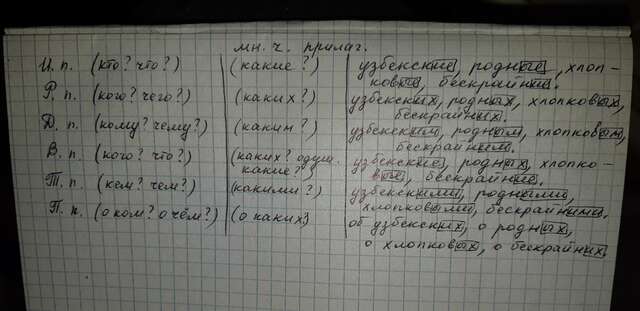 мн. ч. прилаг.
И. п. (кто? что?) (какие?) узбекские, родные, хлоп-
ковые, бескрайние.
Р. п. (кого? чего?) (каких?) узбекских, родных, хлопковых,
бескрайних.
Д. п. (кому? чему?) (каким?) узбекским, родным, хлопковым,
бескрайним.
В. п. (кого? что?) (каких? одуш. узбекские, родных, хлопко-
какие?) вые, бескрайние.
Т. п. (кем? чем?) (какими?) узбекскими, родными,
хлопковыми, бескрайними.
П. п. (о ком? о чём?) (о каких?) об узбекских, о родных,
о хлопковых, о бескрайних.